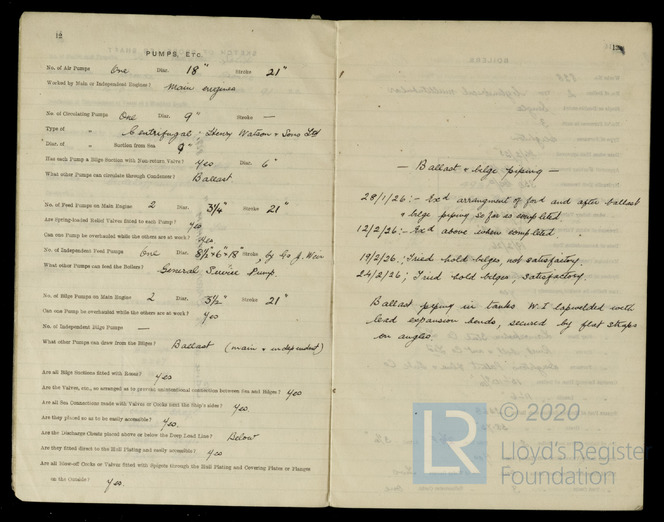 12
PUMPS, ETC.
No. of Air Pumps One Diar. 18" Stroke 21"
Worked by Main or Independent Engines? Main engines
No. of Circulating Pumps One Diar. 9" Stroke —
Type of " Centrifugal: Henry Watson & Sons Ltd
Diar. of " Suction from Sea 9"
Has each Pump a Bilge Suction with Non-return Valve? Yes Diar. 6"
What other Pumps can circulate through Condenser? Ballast
No. of Feed Pumps on Main Engine 2 Diar. 3¼" Stroke 21"
Are Spring-loaded Relief Valves fitted to each Pump? Yes
Can one Pump be overhauled while the others are at work? Yes
No. of Independent Feed Pumps One 8½"×6"×18" Stroke, by G. & J. Weir
What other Pumps can feed the Boilers? General Service Pump.
No. of Bilge Pumps on Main Engine 2 Diar. 3½" Stroke 21"
Can one Pump be overhauled while the others are at work? Yes
No. of Independent Bilge Pumps —
What other Pumps can draw from the Bilges? Ballast (main & independent)
Are all Bilge Suctions fitted with Roses? Yes
Are the Valves, etc., so arranged as to prevent unintentional connection between Sea and Bilges? Yes
Are all Sea Connections made with Valves or Cocks next the Ship's sides? Yes.
Are they placed so as to be easily accessible? Yes.
Are the Discharge Chests placed above or below the Deep Load Line? Below
Are they fitted direct to the Hull Plating and easily accessible? Yes
Are all Blow-off Cocks or Valves fitted with Spigots through the Hull Plating and Covering Plates or Flanges
on the Outside? Yes.
— Ballast & bilge piping —
28/1/26:- Exd arrangement of ford and after ballast
& bilge piping so far as completed.
12/2/26:- Exd above when completed
19/2/26; Tried hold bilges, not satisfactory.
24/2/26; Tried hold bilges, satisfactory.
Ballast piping in tanks W.I lapwelded with
lead expansion bends, secured by flat straps
on angles.
© 2020
LR
Lloyd's Register
Foundation